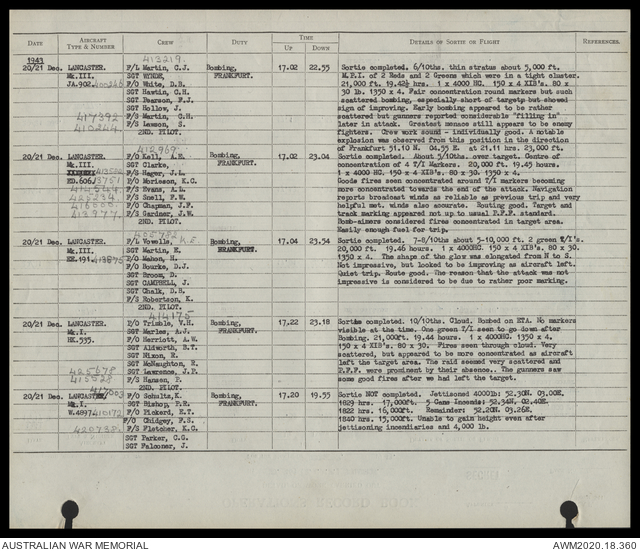 DATE AIRCRAFT TYPE & NUMBER CREW DUTY TIME UP DOWN DETAILS OF SORTIE OR FLIGHT REFERENCES.
1943
413219.
20/21 Dec. LANCASTER. F/L Martin, C.J. Bombing, 17.02 22.55 Sortie completed. 6/10ths. thin stratus about 5,000 ft.
Mk.III. SGT WYNDE, FRANKFURT. M.P.I. of 2 Reds and 2 Greens which were in a tight cluster.
JA.902. F/O White, D.B. 21,000 ft. 19.42½ hrs. 1 x 4000 HC. 150 x 4 XIB's. 80 x
SGT Hawtin, C.H. 30 lb. 1350 x 4. Fair concentration round markers but such
SGT Pearson, F.J. scattered bombing, especially short of targets but showed
SGT Hollow, J. sign of improving. Early bombing appeared to be rather
417392 F/S Martin, C.H. scattered but gunners reported considerable "filling in"
410244. F/S Lawson, S. later in attack. Greatest menace still appears to be enemy
2ND. PILOT. fighters. Crew work sound - individually good. A notable
explosion was observed from this position in the direction
412969. of Frankfurt 51.10 N. 04.35 E. at 21.11 hrs. 23,000 ft.
20/21 Dec. LANCASTER. F/O Kell, A.E. Bombing, 17.02 23.04 Sortie completed. About 5/10ths. over target. Centre of
Mk.III. SGT Clarke, FRANKFURT. concentration of 4 T/I Markers. 20,000 ft. 19.45 hours.
F/S Hager, J.L. 1 x 4000 HC. 150 x 4 XIB's. 80 x 30. 1350 x 4.
ED.606. F/O Morieson, K.C. Goods fires seen concentrated around T/I markers becoming
414544. F/S Evans, A.L. more concentrated towards the end of the attack. Navigation
425234. F/S Snell, F.W. reports broadcast winds as reliable as previous trip and very
F/O Chapman, J.F. helpful met. winds also accurate. Routing good. Target and
413977. F/S Gardner, J.W. track marking appeared not up to usual P.F.F. standard.
2ND. PILOT. Bomb-aimers considered fires concentrated in target area.
Easily enough fuel for trip.
405782.
20/21 Dec. LANCASTER. F/L Vowells, K.E. Bombing, 17.04 23.54 Sortie completed. 7-8/10ths about 5-10,000 ft. 2 green T/I's.
Mk.III. SGT Martin, E. FRANKFURT. 20,000 ft. 19.46 hours. 1 x 4000HC. 150 x 4 XIB's. 80 x 30.
EE.191. 413875 F/O Mahon, H. 1350 x 4. The shape of the glow was elongated from N to S.
F/O Bourke, D.J. Not impressive, but looked to be improving as aircraft left.
SGT Broom, D. Quiet trip. Route good. The reason that the attack was not
SGT CAMPBELL, J. impressive is considered to be due to rather poor marking.
SGT Chalk, D.S.
F/S Robertson, K.
2ND. PILOT.
414175
20/21 Dec. LANCASTER. F/O Trimble, V.H. Bombing, 17.22 23.18 Sortie completed. 10/10ths. Cloud. Bombed on ETA. No markers
Mk.I. SGT Marles, A.J. FRANKFURT. visible at the time. One green T/I seen to go down after
HK.535. F/O Herriott, A.W. Bombing. 21,000ft. 19.44 hours. 1 x 4000HC. 1350 x 4.
SGT Aldworth, S.T. 150 x 4 XIB's. 80 x 30. Fires seen through cloud. Very
SGT Nixon, R. scattered, but appeared to be more concentrated as aircraft
SGT McNaughton, R. left the target area. The raid seemed very scattered and
425678 SGT Lawrence, J.P. P.F.F. were prominent by their absence.. The gunners saw
F/S Hansen, P. some good fires after we had left the target.
2ND PILOT.
417003
20/21 Dec. LANCASTER. F/O Schultz, K. Bombing, 17.20 19.55 Sortie NOT completed. Jettisoned 4000lb: 52.30N. 03.00E.
Mk.I. SGT Bishop, P.R. FRANKFURT. 1829 hrs. 17,000ft. 5 Cans Incends: 52.34N. 02.40E.
W.4897. 410172 F/O Pickerd, E.T. 1822 hrs. 16,000ft. Remainder: 52.20N. 03.26E.
F/O Chidgey, F.S. 1840 hrs. 15,000ft. Unable to gain height even after
420738. F/S Fletcher, K.C. jettisoning incendiaries and 4,000 lb.
SGT Parker, C.G.
SGT Falconer, J.
AUSTRALIAN WAR MEMORIAL AWM2020.18.360